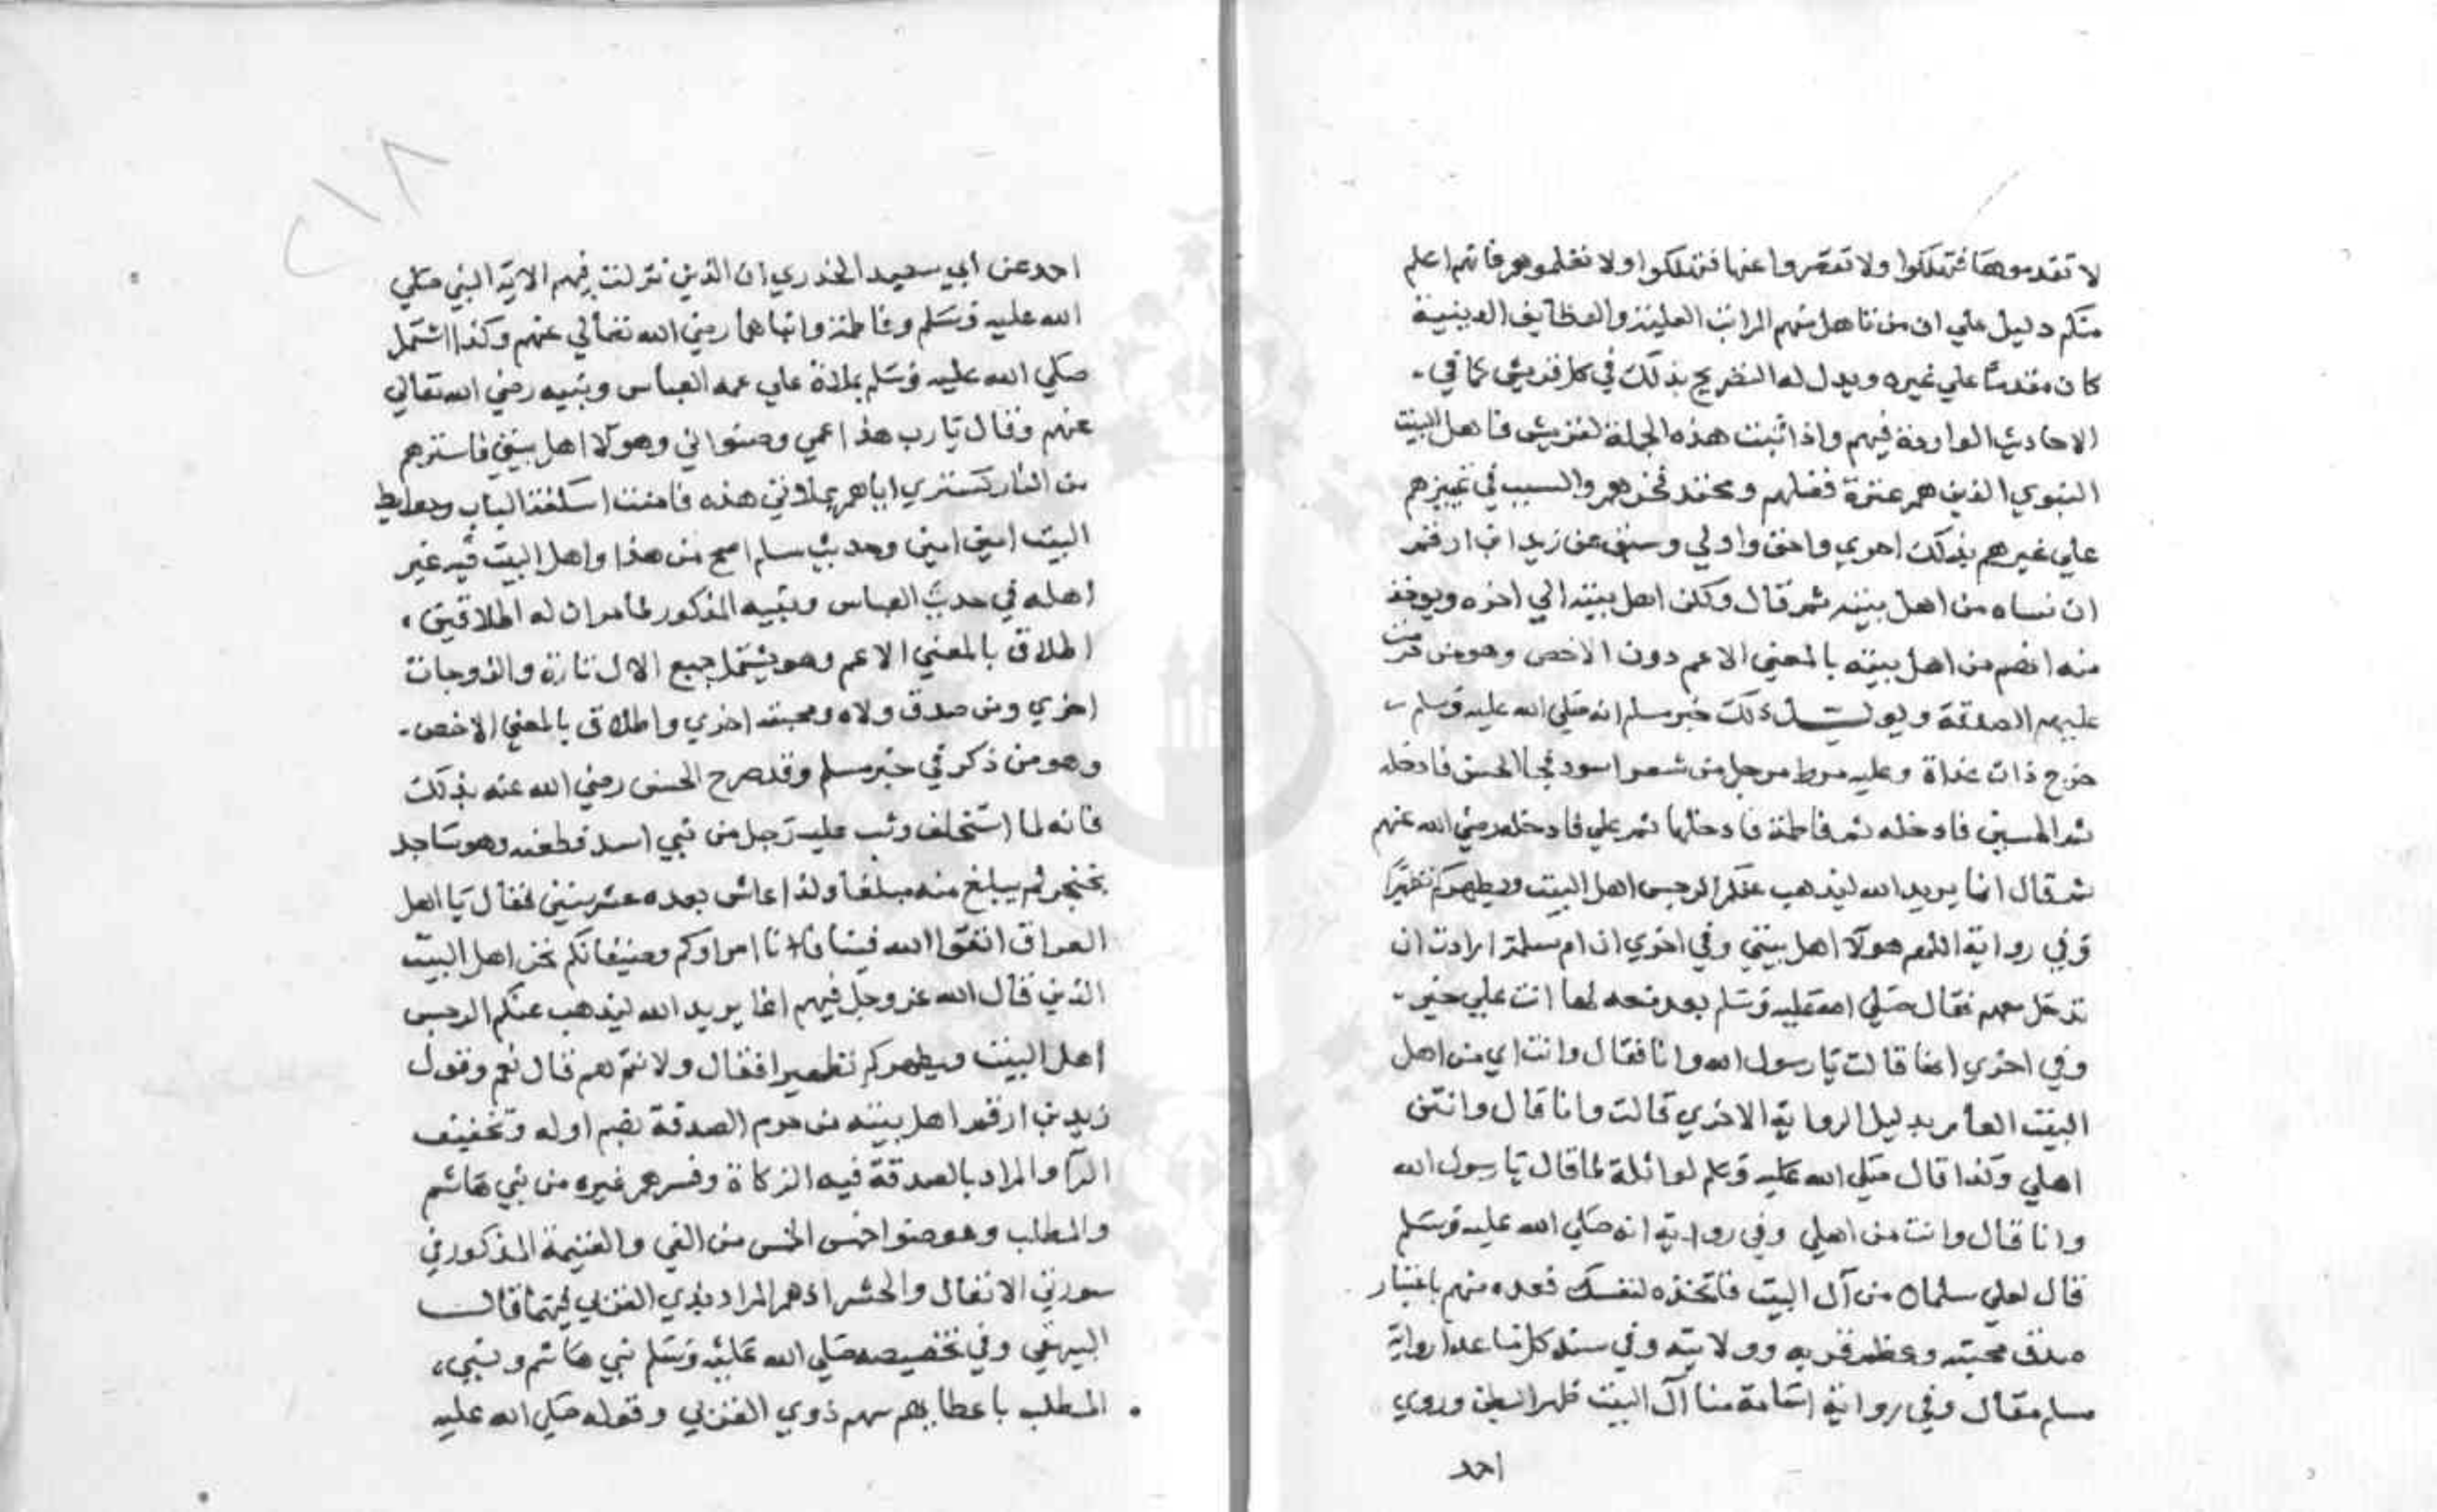 لا تقدموهما فتهلكوا ولا تقصروا عنها فتهلكوا ولا تعلموهم فانهم اعلم
منكم دليل علي ان من تاهل منهم المراتب العلية والوظايف الدينية
كان مقدما علي غيره ويدل له التصريح بذلك في كل قريش كما في
الاحاديث الواردة فيهم واذا ثبت هذه الجملة لقريش فاهل البيت
النبوي الذين هم عترة فضلهم ومحتد فخرهم والسبب في تميزهم
علي غيرهم بذلك احري واحق واولي وسبق عن زيد ابن ارقم
ان نساه من اهل بيته ثم قال ولكن اهل بيته الي اخره ويوخذ
منه انهم من اهل بيته بالمعني الاعم دون الاخص وهو من حرمت
عليهم الصدقة ويويد ذلك خبر مسلم انه صلي الله عليه وسلم
خرج ذات غداة وعليه مرط مرجل من شعر اسود فجا الحسن فادخله
ثم الحسين فادخله ثم فاطمة فادخلها ثم علي فادخله رضي الله عنهم
ثم قال انما يريد الله ليذهب عنكم الرجس اهل البيت ويطهركم تطهيرا
وفي رواية اللهم هولا اهل بيتي وفي اخري ان ام سلمة ارادت ان
تدخل معهم فقال صلي الله عليه وسلم بعد منعه لها انت علي خير
وفي اخري انها قالت يا رسول الله وانا فقال وانت اي من اهل
البيت العام بدليل الرواية الاخري قالت وانا قال وانتي
اهلي وكذا قال صلي الله عليه وسلم لواثلة لما قال يا رسول الله
وانا قال وانت من اهلي وفي رواية انه صلي الله عليه وسلم
قال لعلي سلمان من آل البيت فاتخذه لنفسك فعده منهم باعتبار
صدق محبته وعظم قربه وولايته وفي سند كل ما عدا رواية
مسلم مقال وفي رواية اسامة منا آل البيت ظهرا لبطن وروي
احمد
٢١٨
احمد عن ابي سعيد الخدري ان الذين نزلت فيهم الاية النبي صلي
الله عليه وسلم وفاطمة وابناهما رضي الله تعالي عنهم وكذا اشتمل
صلي الله عليه وسلم بملاة علي عمه العباس وبنيه رضي الله تعالي
عنهم وقال يا رب هذا عمي وصنو ابي وهولا اهل بيتي فاسترهم
من النار كستري اياهم بملاتي هذه فامنت اسكفة الباب وحوايط
البيت امين امين وحديث مسلم اصح من هذا واهل البيت فيه غير
اهله في حديث العباس وبنيه المذكور لما مر ان له اطلاقين
اطلاق بالمعني الاعم وهو يشمل جميع الال تارة والزوجات
اخري ومن صدق ولاه ومحبته اخري واطلاق بالمعني الاخص
وهو من ذكر في خبر مسلم وقد صرح الحسن رضي الله عنه بذلك
فانه لما استخلف وثب عليه رجل من بني اسد فطعنه وهو ساجد
بخنجر لم يبلغ منه مبلغا ولذا عاش بعده عشر سنين فقال يا اهل
العراق اتقوا الله فينا فانا امراوكم وضيفانكم نحن اهل البيت
الذين قال الله عز وجل فيهم انما يريد الله ليذهب عنكم الرجس
اهل البيت ويطهركم تطهيرا فقال ولانتم هم قال نعم وقول
زيد بن ارقم اهل بيته من حرم الصدقة بضم اوله وتخفيف
الرا والمراد بالصدقة فيه الزكاة وفسرهم غيره من بني هاشم
والمطلب وعوضوا خمس الخمس من الفي والغنيمة المذكور في
سورتي الانفال والحشر اذ هم المراد بذي القربي فيهما قال
البيهقي وفي تخصيصه صلي الله عليه وسلم بني هاشم وبني
المطلب باعطايهم سهم ذوي القربي وقوله صلي الله عليه